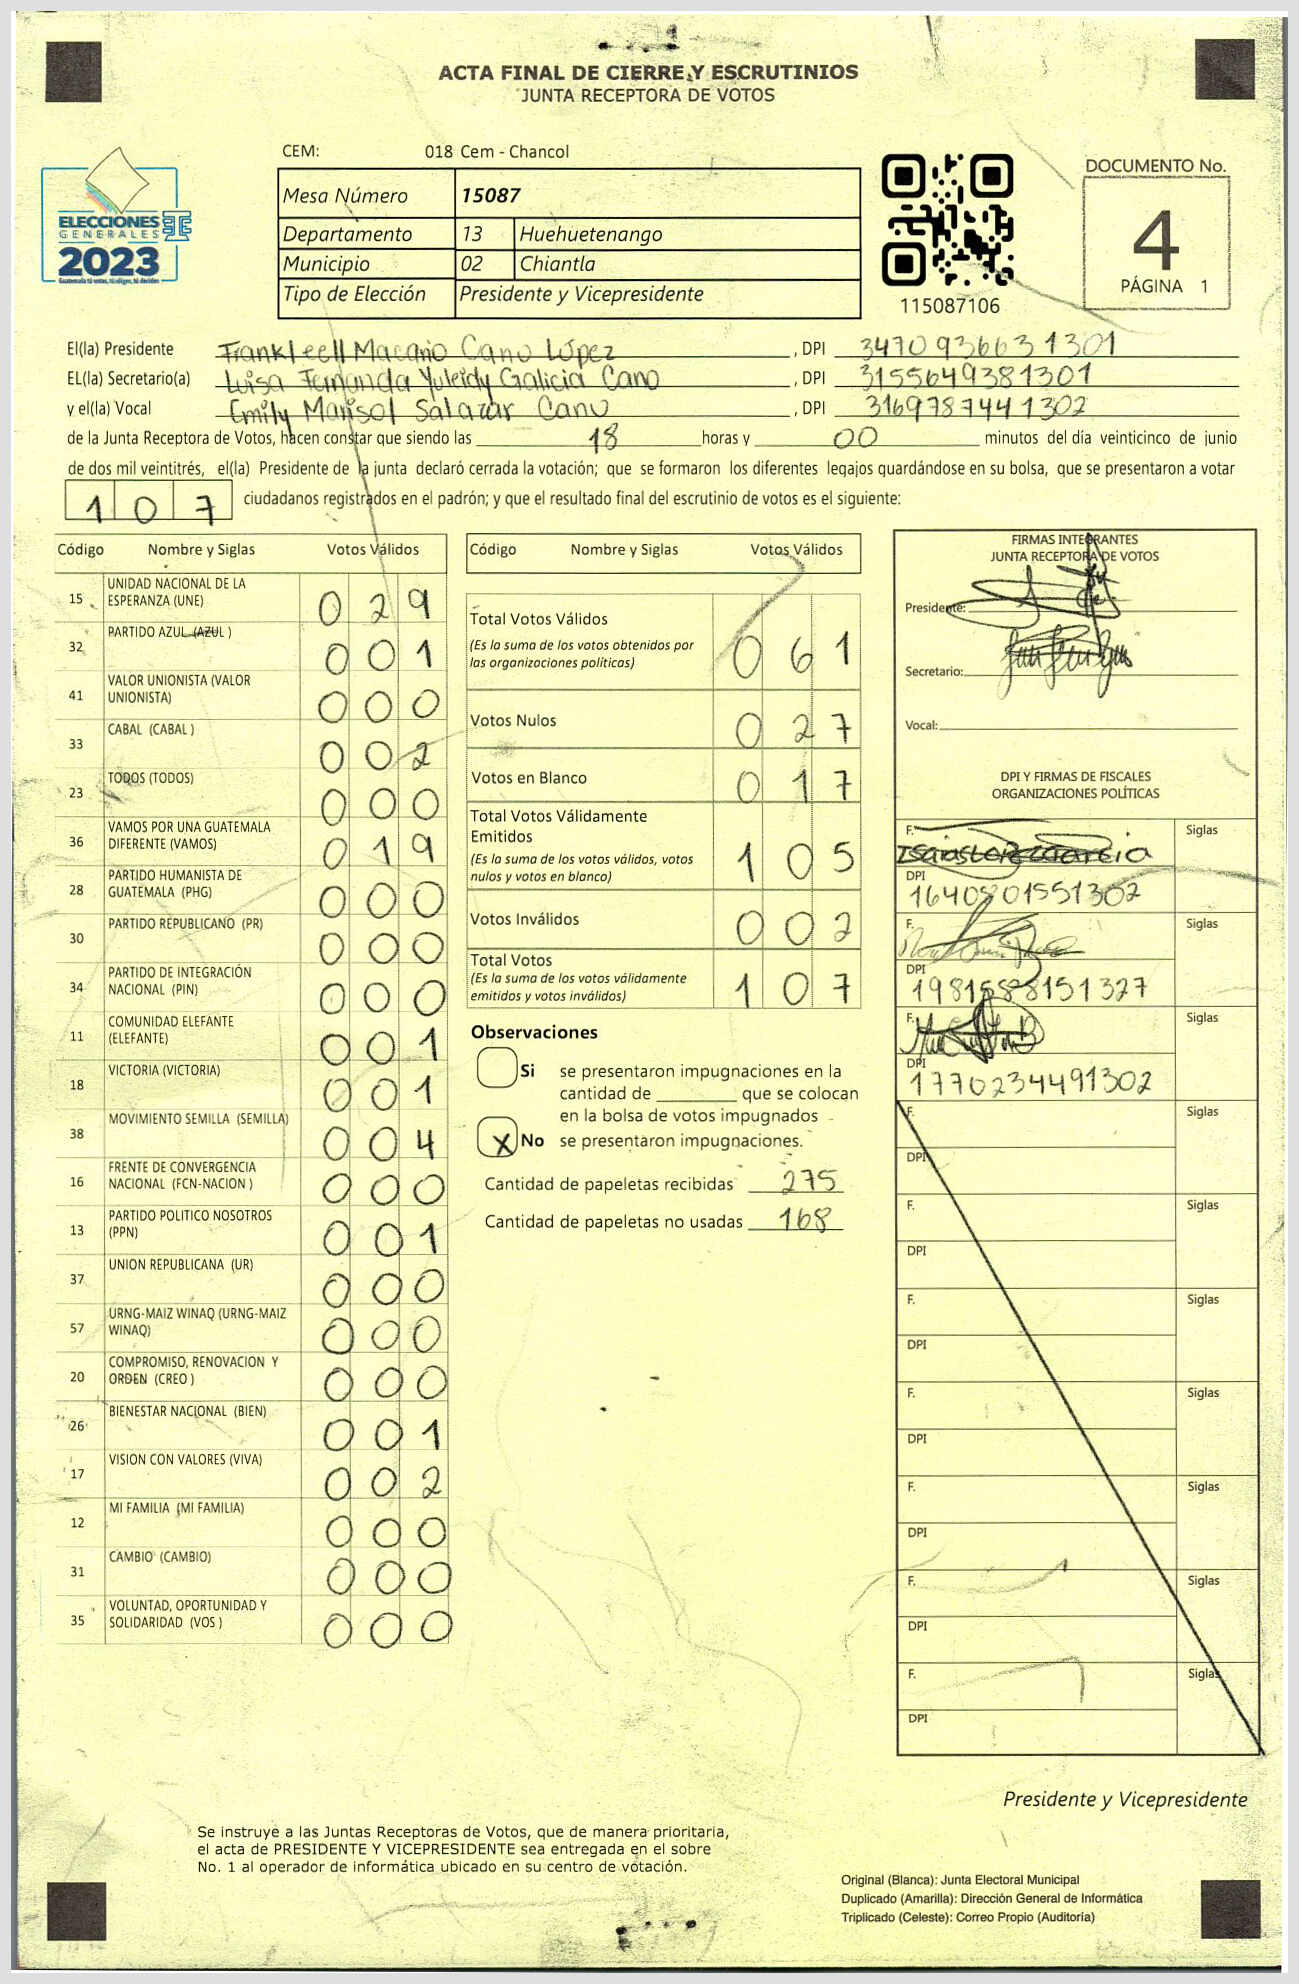 ACTA FINAL DE CIERRE Y ESCRUTINIOS
JUNTA RECEPTORA DE VOTOS
ELECCIONES
GENERALES
2023
CEM: 018 Cem - Chancol
Mesa Número 15087
Departamento 13 Huehuetenango
Municipio 02 Chiantla
Tipo de Elección Presidente y Vicepresidente
115087106
DOCUMENTO No.
4
PÁGINA 1
El(la) Presidente Frankleell Macario Cano López , DPI 3470936631301
EL(la) Secretario(a) Luisa Fernanda Yuleidy Galicia Cano , DPI 3155649381301
y el(la) Vocal Emily Marisol Salazar Cano , DPI 3169787441302
de la Junta Receptora de Votos, hacen constar que siendo las 18 horas y 00 minutos del día veinticinco de junio
de dos mil veintitrés, el(la) Presidente de la junta declaró cerrada la votación; que se formaron los diferentes legajos guardándose en su bolsa, que se presentaron a votar
107 ciudadanos registrados en el padrón; y que el resultado final del escrutinio de votos es el siguiente:
Código Nombre y Siglas Votos Válidos
15 UNIDAD NACIONAL DE LA ESPERANZA (UNE) 029
32 PARTIDO AZUL (AZUL ) 001
41 VALOR UNIONISTA (VALOR UNIONISTA) 000
33 CABAL (CABAL ) 002
23 TODOS (TODOS) 000
36 VAMOS POR UNA GUATEMALA DIFERENTE (VAMOS) 019
28 PARTIDO HUMANISTA DE GUATEMALA (PHG) 000
30 PARTIDO REPUBLICANO (PR) 000
34 PARTIDO DE INTEGRACIÓN NACIONAL (PIN) 000
11 COMUNIDAD ELEFANTE (ELEFANTE) 001
18 VICTORIA (VICTORIA) 001
38 MOVIMIENTO SEMILLA (SEMILLA) 004
16 FRENTE DE CONVERGENCIA NACIONAL (FCN-NACION ) 000
13 PARTIDO POLITICO NOSOTROS (PPN) 001
37 UNION REPUBLICANA (UR) 000
57 URNG-MAIZ WINAQ (URNG-MAIZ WINAQ) 000
20 COMPROMISO, RENOVACION Y ORDEN (CREO ) 000
26 BIENESTAR NACIONAL (BIEN) 001
17 VISION CON VALORES (VIVA) 002
12 MI FAMILIA (MI FAMILIA) 000
31 CAMBIO (CAMBIO) 000
35 VOLUNTAD, OPORTUNIDAD Y SOLIDARIDAD (VOS ) 000
Código Nombre y Siglas Votos Válidos
Total Votos Válidos 061
(Es la suma de los votos obtenidos por
las organizaciones políticas)
Votos Nulos 027
Votos en Blanco 017
Total Votos Válidamente
Emitidos 105
(Es la suma de los votos válidos, votos
nulos y votos en blanco)
Votos Inválidos 002
Total Votos 107
(Es la suma de los votos válidamente
emitidos y votos inválidos)
Observaciones
Si se presentaron impugnaciones en la
cantidad de ________ que se colocan
en la bolsa de votos impugnados
X No se presentaron impugnaciones.
Cantidad de papeletas recibidas 275
Cantidad de papeletas no usadas 168
FIRMAS INTEGRANTES
JUNTA RECEPTORA DE VOTOS
Presidente:
Secretario:
Vocal:
DPI Y FIRMAS DE FISCALES
ORGANIZACIONES POLÍTICAS
F. Siglas
DPI
1640801551302
F. Siglas
DPI
1981588151327
F. Siglas
DPI
1770234491302
F. Siglas
DPI
F. Siglas
DPI
F. Siglas
DPI
F. Siglas
DPI
F. Siglas
DPI
F. Siglas
DPI
F. Siglas
DPI
Presidente y Vicepresidente
Se instruye a las Juntas Receptoras de Votos, que de manera prioritaria,
el acta de PRESIDENTE Y VICEPRESIDENTE sea entregada en el sobre
No. 1 al operador de informática ubicado en su centro de votación.
Original (Blanca): Junta Electoral Municipal
Duplicado (Amarilla): Dirección General de Informática
Triplicado (Celeste): Correo Propio (Auditoría)